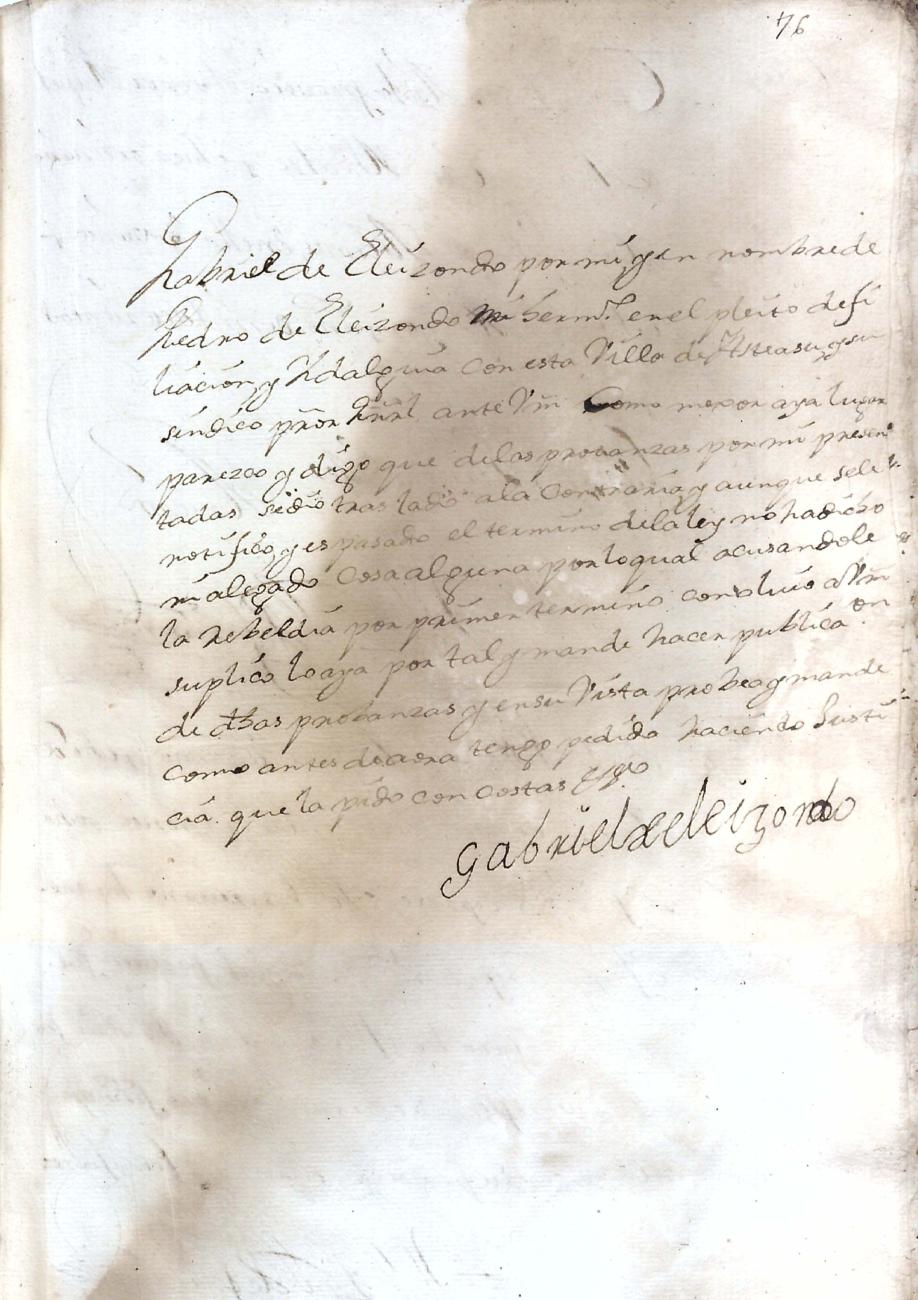 76
Gabriel de Eleizondo por mi y en nombre de
Pedro de Eleizondo mi herm.º en el pleito de fi
liacion y Hidalguia con esta Villa de Asteasu y su
sindico pror Gnrl. ante Vm Como mexor aya lugar
parezco y digo que de las probanzas por mi presen
tadas se dio traslado a la Contraria y aunque se le
notifico y es pasado el termino de la ley no ha dicho
ni alegado Cosa alguna por lo qual acusandole
la Rebeldia por primer termino concluio a Vm
suplico lo aya por tal y mande hacer publica on
de dhas probanzas y en su Vista probea y mande
como antes de aora tengo pedido haciendo Justi
cia que la pido con Costas
Gabriel de eleizondo